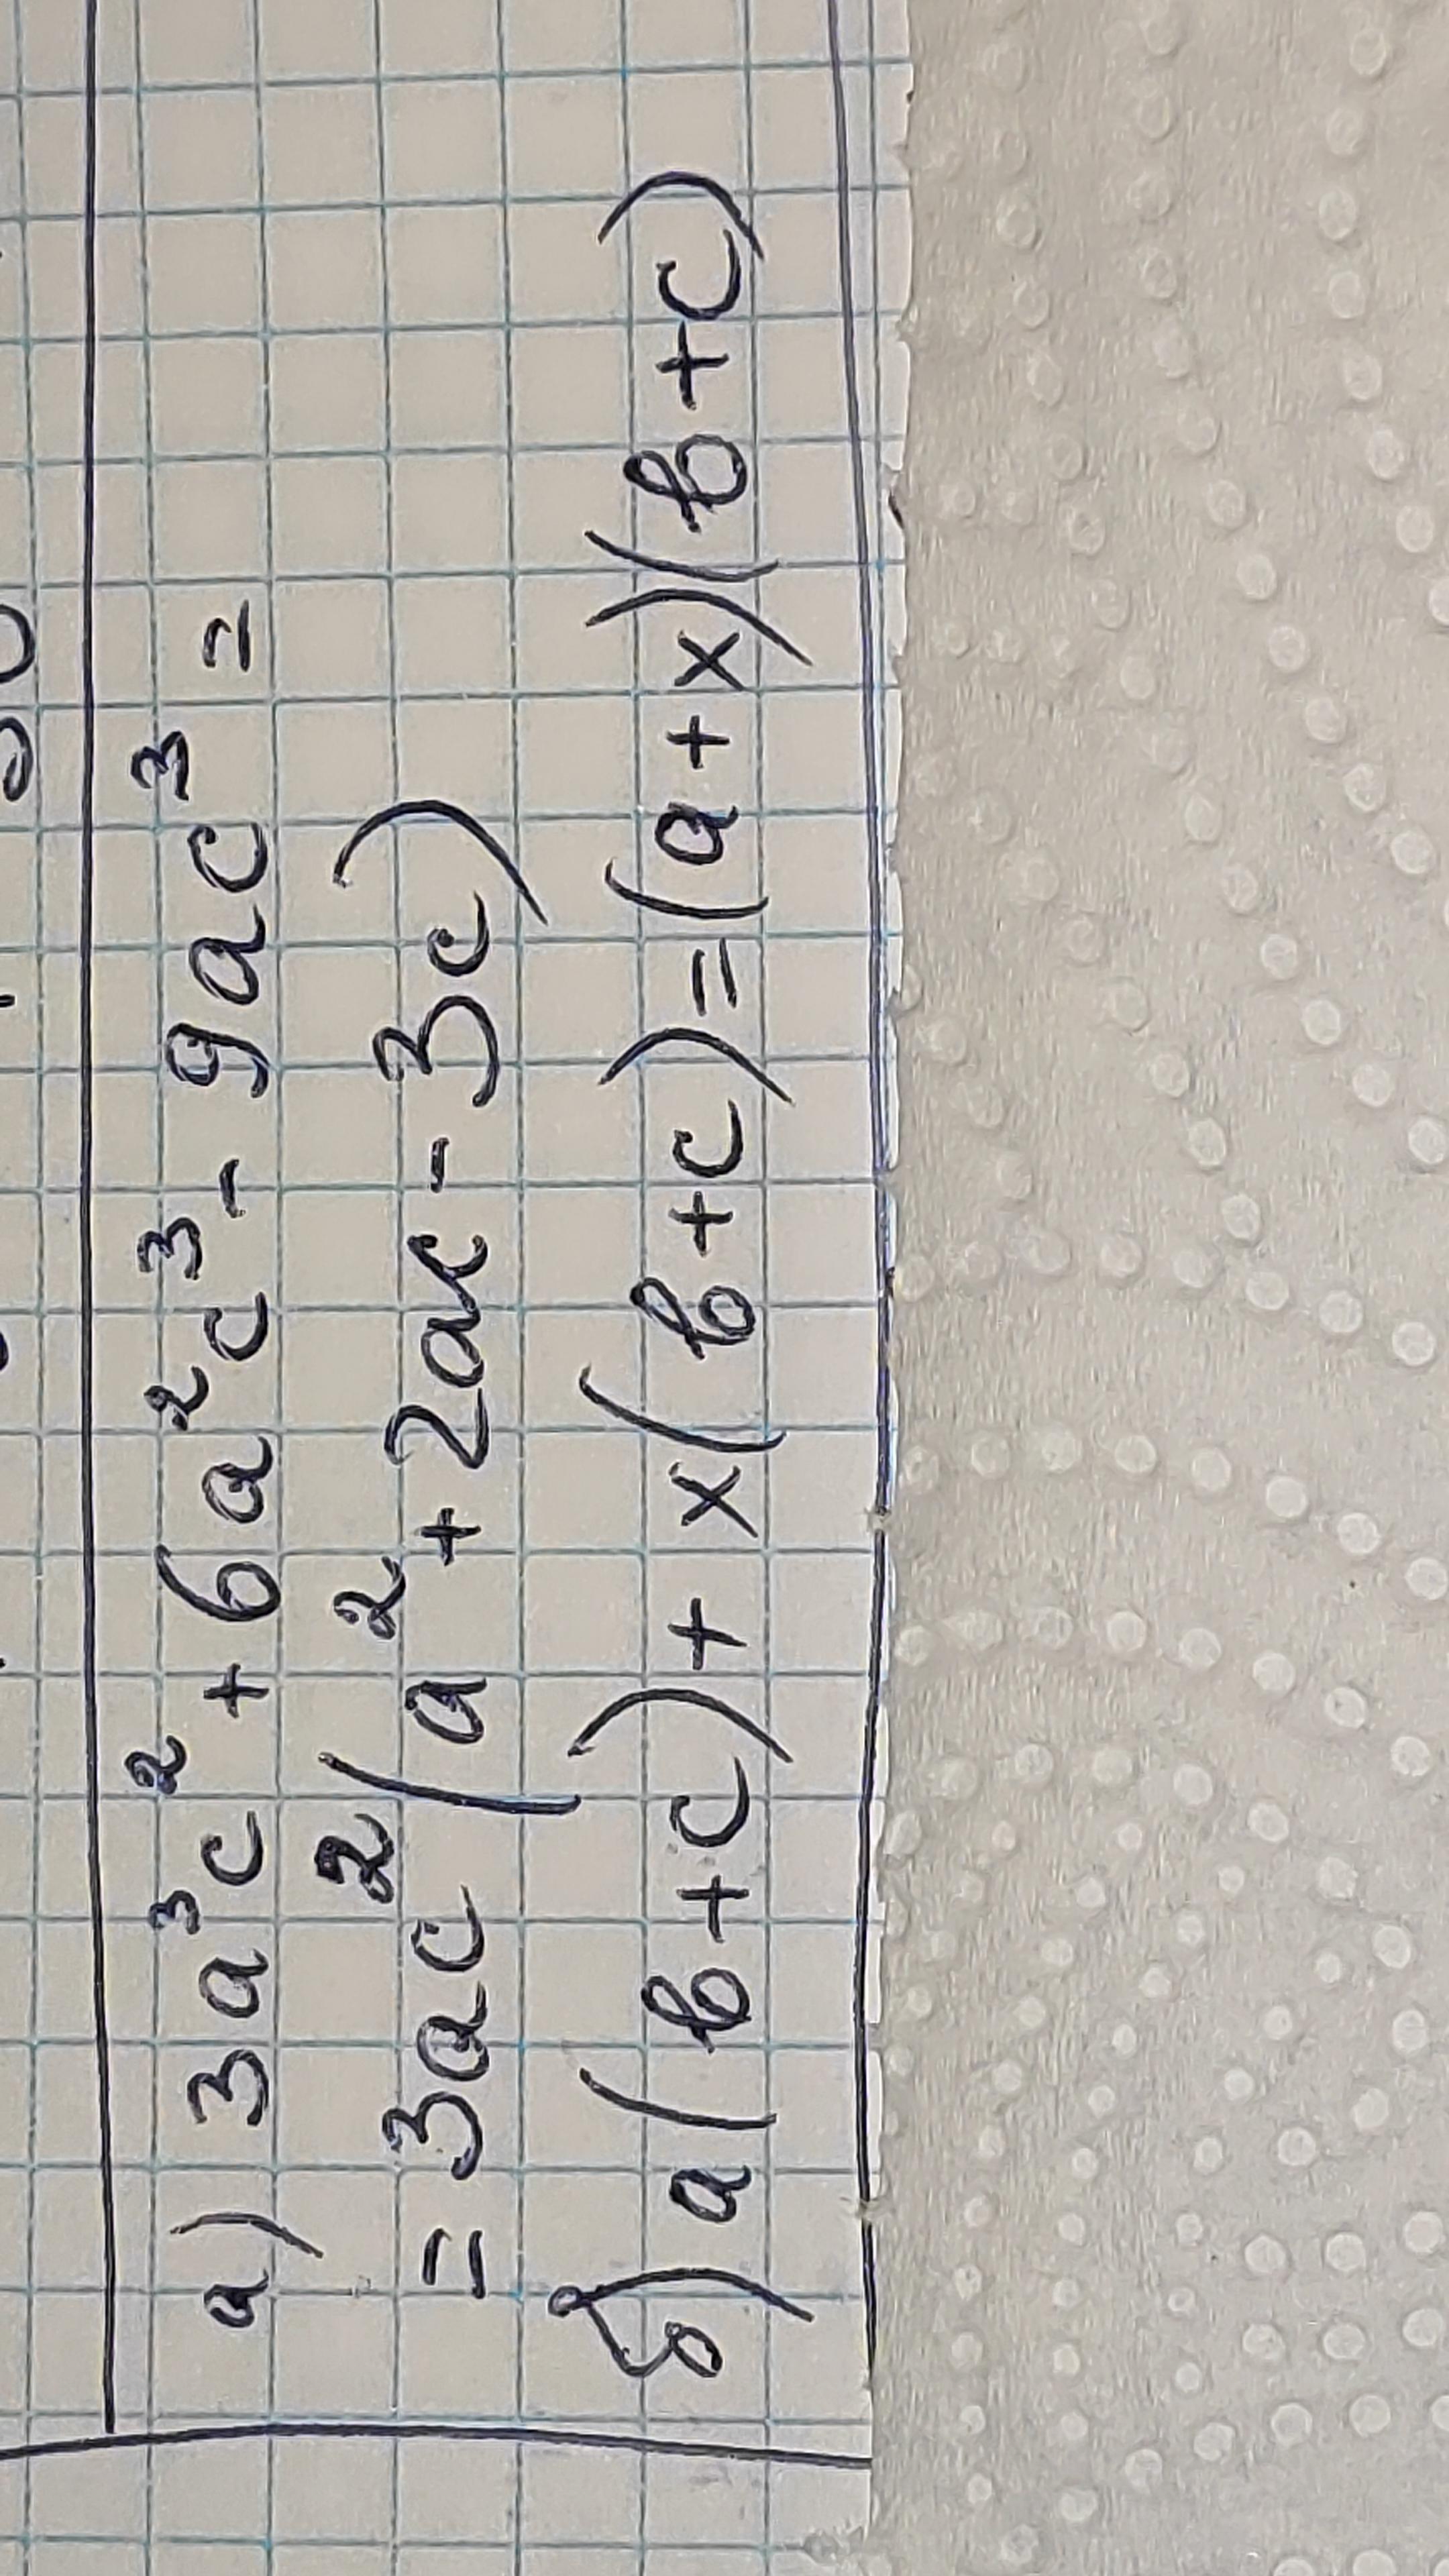 а) 3a³c² + 6a²c³ - 9ac³ =
= 3ac² (a² + 2ac - 3c)
б) a(b+c) + x(b+c) = (a+x)(b+c)